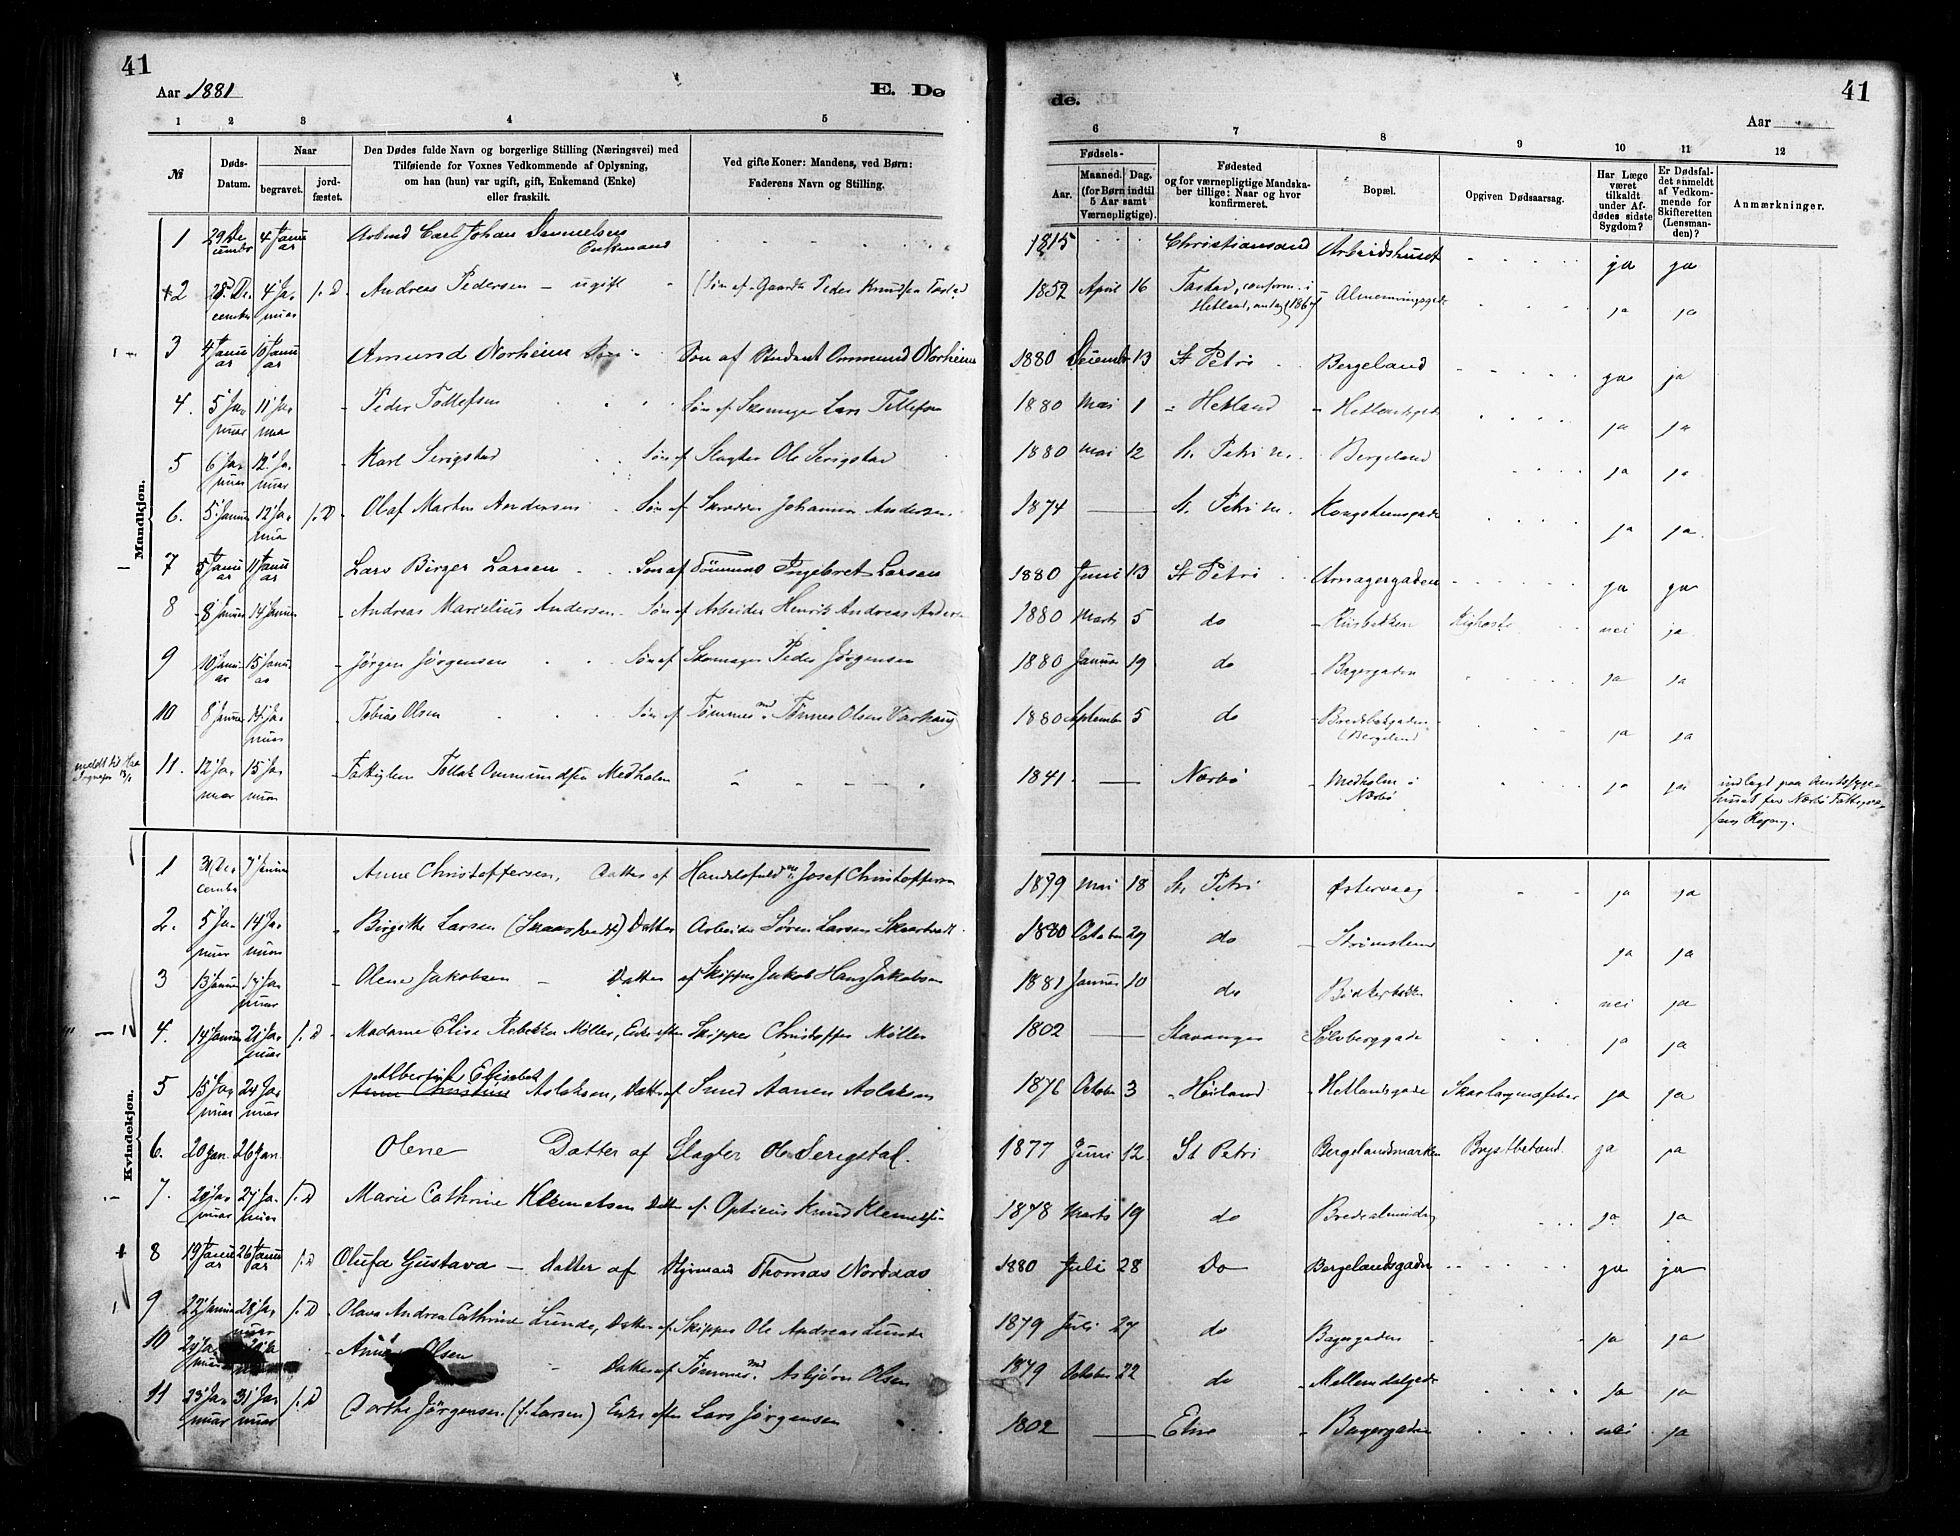 41
Aar 1881
E. Dø
1 2 3 4 5
№
Døds-Datum.
Naar
begravet.
jord-fæstet.
Den Dødes fulde Navn og borgerlige Stilling (Næringsvei) med
Tilføiende for Voxnes Vedkommende af Oplysning,
om han (hun) var ugift, gift, Enkemand (Enke)
eller fraskilt.
Ved gifte Koner: Mandens, ved Børn:
Faderens Navn og Stilling.
Mandkjøn.
1 29 December 4 Januar Arbeid Carl Johan Enkemand
2 4 Januar f. D Andreas Pedersen - ugift (Søn af Gaardb Peder Knudsen Tastad
3 4 Januar 10 Januar Amund Norheim Søn af Ommund Norheim
4. 5 Januar 11 Januar Peder Tollefsen Søn af Skomager Lars Tollefsen
5 6 Januar 12 Januar Karl Serigstad Søn af Slagter Ole Serigstad
6. 5 Januar 12 Januar f. D Olaf Martin Andersen Søn af Skrædder Johannes Andersen
7 5 Januar 11 Januar Lars Birger Larsen Søn af Tømmermd Ingebret Larsen
8 8 Januar 14 Januar Andreas Marselius Andersen Søn af Arbeider Henrik Andreas Andersen
9 10 Januar 15 Januar Jørgen Jørgensen Søn af Skomager Peder Jørgensen
10 8 Januar 14 Januar Tobias Olsen Søn af Tømmermd. Tønnes Olsen Varhaug
meldt til Haa
11. 12 Januar 15 Januar Fattiglem Tollak Ommundsen Medholen
Kvindekjøn.
1 31 December 7 Januar Anne Christoffersen, Datter af Handelsfuldm. Josef Christoffersen
2. 5 Januar 14 Januar Birgitte Larsen Datter Arbeider Søren Larsen
3 13 Januar 17 Januar Olene Jakobsen Datter af Skipper Jakob Hans Jakobsen
4. 14 Januar 21 Januar f. D Madame Elise Rebekka Møller, Enke efter Skipper Christoffer Møller
5 15 Januar 24 Januar Albertine Elisabet Anne Christine Aslaksen, Datter af Smed Aanen Aslaksen
6. 20 Jan. 26 Jan. Olene Datter af Slagter Ole Serigstad.
7. 20 Januar 27 Januar f. D Marie Cathrine Klemetsen Datter af Opticus Knud Klemetsen
8 19 Januar 26 Januar f. D Olufa Gustava - Datter af Thomas Nordaas
9 22 Januar 28 Januar f. D Olava Andrea Cathrine Lunde, Datter af Skipper Ole Andreas Lunde
10 Anne Olsen Datter af Tømmermd. Asbjørn Olsen
11 23 Januar 31 Januar f. D Dorthe Jørgensen (f. Larsen) Enke efter Lars Jørgensen
de.
41
Aar
6 7 8 9 10 11 12
Fødsels-
Aar.
Maaned. Dag.
(for Børn indtil
5 Aar samt
Værnepligtige).
Fødested
og for værnepligtige Mandska-
ber tillige: Naar og hvor
konfirmeret.
Bopæl.
Opgiven Dødsaarsag.
Har Læge
været
tilkaldt
under Af-
dødes sidste
Sygdom?
Er Dødsfal-
det anmeldt
af Vedkom-
mende for
Skifteretten
(Lensman-
den)?
Anmærkninger.
1815 Christiansand Arbeidshuset ja ja
1852 April 16 Tastad, conform. i Hetland, 1867 ja ja
1880 December 13 St Petri Bergeland ja ja
1880 Mai 1 Hetland Hetlandsgade ja ja
1880 Mai 12 St. Petri M. Bergeland ja ja
1874 St. Petri M. Kongsteensgade ja ja
1880 Juni 13 St Petri Amagergaden ja ja
1880 Marts 5 do Kighoste nei ja
1880 Januar 19 do Bagergaden ja ja
1880 September 5 do Bredebakgaden (Bergeland ja ja
1841 Nærbø Medholen i Nærbø ja ja indlagt paa Amtssyge-
huset for Nærbø Fattigvæ-
sens Regng.
1879 Mai 18 St. Petri Østervaag ja ja
1880 October 29 do Strømsteen ja ja
1881 Januar 10 do Bødkerbakken nei ja
1802 Stavanger Sølvberggade ja ja
1876 October 3 Høiland Hetlandsgade Skarlagensfeber ja ja
1877 Juni 12 St Petri Bergelandsmarken Brystbetænd. ja ja
1878 Marts 19 do Bredealmindg ja ja
1880 Juli 28 Do Bergelandsgaden ja ja
1879 Juli 27 do Bagergaden ja ja
1879 October 22 do Mellemdalgade ja ja
1802 Elne Bagergaden nei ja